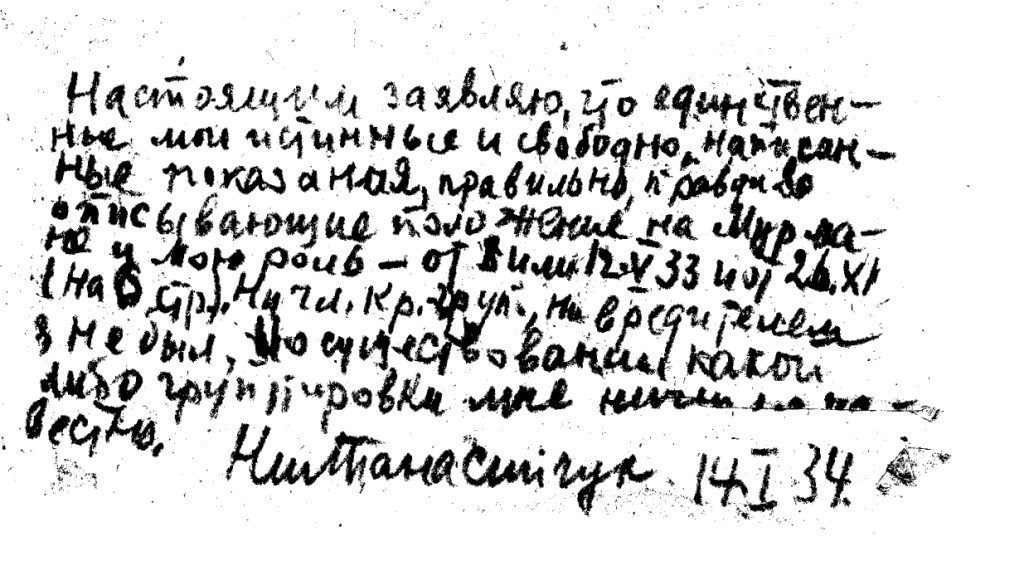 Настоящим заявляю, что единствен-
ные мои истинные и свободно написан-
ные показания, правильно, правдиво
описывающие положение на Мурма-
не и мою роль – от или 12.V 33 и от 26.XI
(на 6 стр). Ни чл. к.р. груп., ни вредителем
я не был, о существовании какой
либо группировки мне ничего не из-
вестно.
Танасийчук 14.I 34.